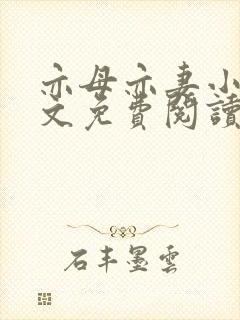 亦母亦妻小
文免費閱讀
石丰墨雲